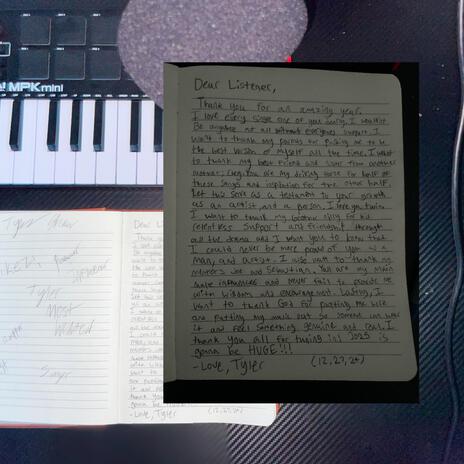 MPK mini
Dear Listener,
Thank you for an amazing year.
I love every single one of you dearly. I wouldn't
Be anywhere at all without everyones support. I
want to thank my parents for pushing me to be
the best version of myself all the time. I want
to thank my best friend and sister from another
mother, You are my driving force for half of
these songs and inspiration for the other half.
Let this serve as a testament to your growth
as an artist and a person. I love you twin.
I want to thank my brother for his
relentless support and friendship through
all the drama and I want you to know that
I could never be more proud of you as a
man, and artist. I also want to thank my
mentors Joe and Sebastian. You are my main
male influences and never fail to provide me
with wisdom and encouragement. Lastly, I
want to thank God for putting me here
and putting my music out so someone can hear
it and feel something genuine and real. I
thank you all for tuning in! 2025 is
gonna be HUGE!!!
-Love, Tyler (12,27,24)
Tyler
Tyler
Most
Wanted
-Love, Tyler (12,27,24)